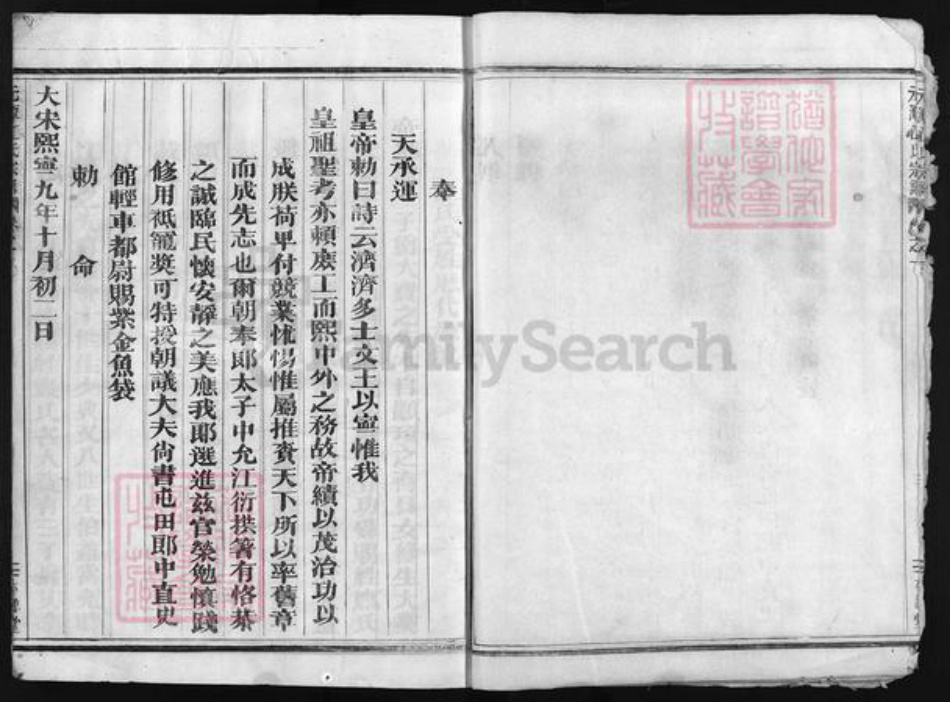 奉
天承運
皇帝勅曰詩云濟濟多士文王以寧惟我
皇祖聖考亦頼庶工而熙中外之務故帝績以茂治功以
成朕荷畀付競業怵惕惟屬推賚天下所以率舊章
而成先志也爾朝奉郎太子中允江衍拱箸有恪恭
之誠臨民懷安靜之美應我郎選進茲官榮勉慎踐
修用祗寵奬可特授朝議大夫尚書屯田郎中直史
館輕車都尉賜紫金魚袋
勅命
大宋熙寧九年十月初二日
FamilySearch
猶他家
譜學會
收藏